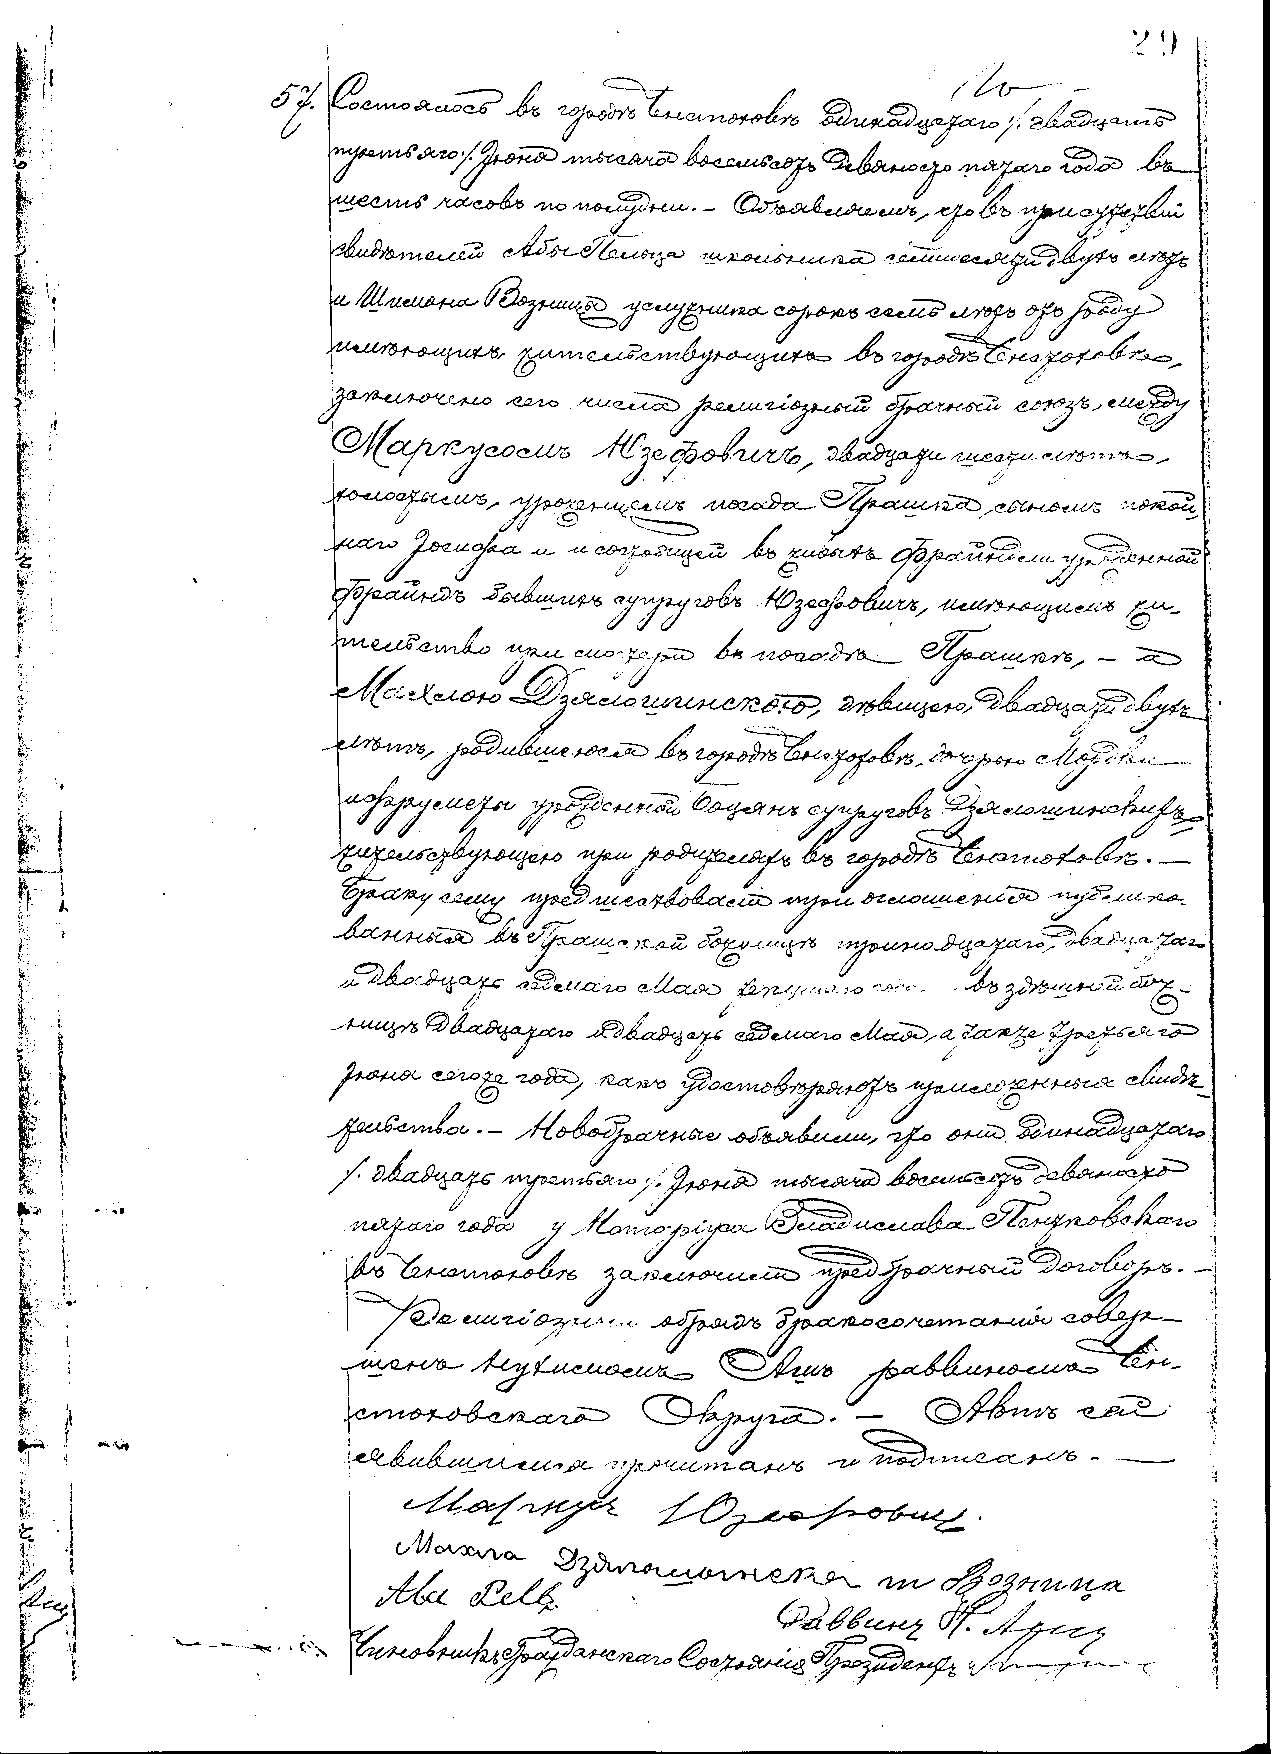 29
57. Состоялось въ городѣ Ченстоховѣ одинадцатаго /: двадцать
третьяго :/ Іюня тысяча восемьсотъ девяносто пятаго года въ
шесть часовъ по полудни. – Объявляемъ, что въ присутствіи
свидѣтелей Абы Пельца школьника семидесяти двухъ лѣтъ
и Шимона Возницы услужника сорокъ семь лѣтъ отъ роду
имѣющихъ, жительствующихъ въ городѣ Ченстоховѣ,
заключено сего числа религіозный брачный союзъ, между
Маркусомъ Юзефовичъ, двадцати шести лѣтъ,
холостымъ, уроженцемъ посада Прашка, сыномъ покой,
наго Іосифа и и сотровицей въ живыхъ Фраймы урожденной
Фрайндъ бывшихъ супруговъ Юзефовичъ, имѣющимъ жи-
тельство при матери въ посадѣ Прашкѣ, – а
Махлою Дзялошинскою, дѣвицею, двадцати двухъ
лѣтъ, родившеюся въ городѣ Ченстоховѣ, дочерью Мордки
и Фруметы урожденной Боцянъ супруговъ Дзялошинскихъ
жительствующею при родителяхъ въ городѣ Ченстоховѣ. –
Браку сему предшествовали три оглошенія публико-
ванныя въ Прашской божницѣ тринадцатаго, двадцатаго
и двадцать седьмаго Мая текущаго года въ здѣшней бож-
ницѣ двадцатаго и двадцать седьмаго Мая, а также третьяго
Іюня сегоже года, какъ удостовѣряютъ приложенныя свидѣ-
тельства. – Новобрачные объявили, что они одинадцатаго
/: двадцать третьяго :/ Іюня тысяча восемьсотъ девяносто
пятаго года у Нотаріуса Владислава Пентковскаго
въ Ченстоховѣ заключили предбрачный договоръ. –
Религіозный обрядъ бракосочетанія совер-
шенъ Нухимомъ Ашъ раввиномъ Чен-
стоховскаго Округа. – Актъ сей
явившимся прочитанъ и подписанъ. –
Маркус Юзефович
Махла Дзялошинска ш Возница
Aba Peltz
Раввинъ Н. Ашъ
Чиновникъ Гражданскаго Состоянія Президентъ